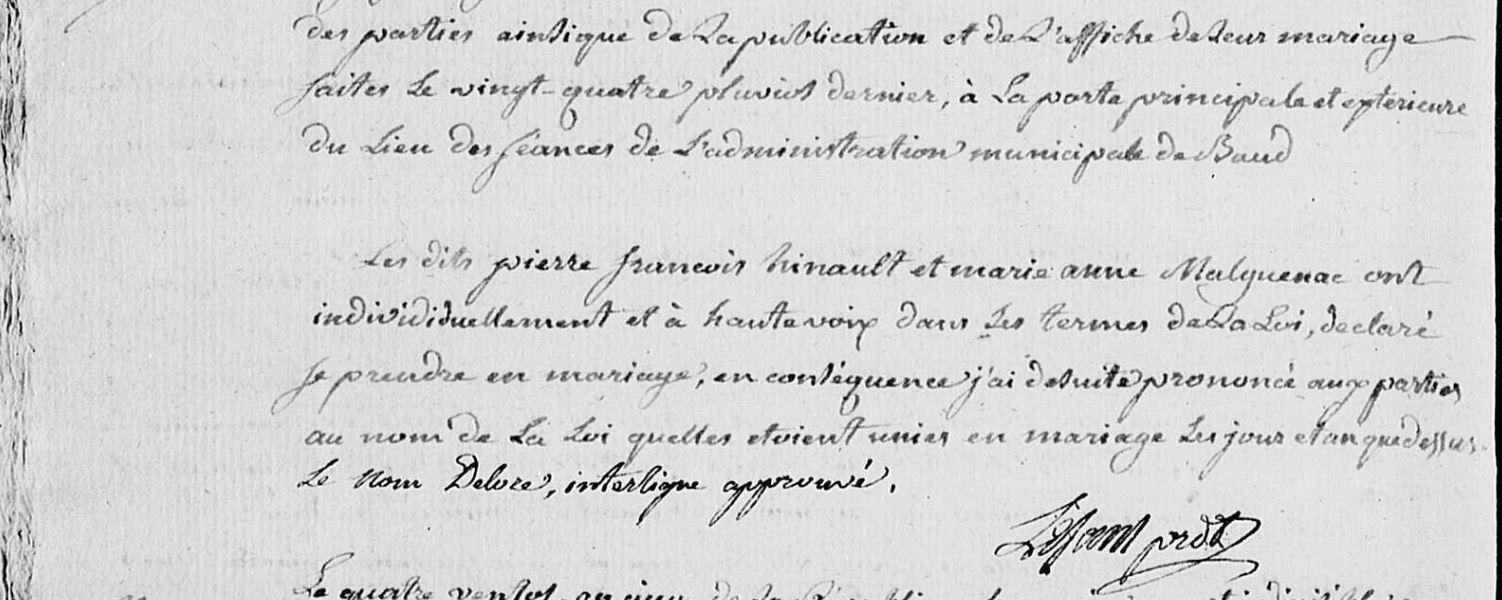 des parties ainsique de La publication et de L'affiche de Leur mariage
faites Le vingt-quatre pluvios dernier, à La porte principale et exterieure
du Lieu des séances de L'administration municipale de Baud
Les dits pierre francois hinault et marie anne Malguenac ont
individiduellement et à haute voix dans Les termes de La Loi, declaré
se prendre en mariage, en conséquence j'ai desuite prononcé aux parties
au nom de La Loi quelles etoient unies en mariage Les jour et an que dessus.
Le nom Delore, interligne approuvé.
Le quatre ventos an cinq de La République